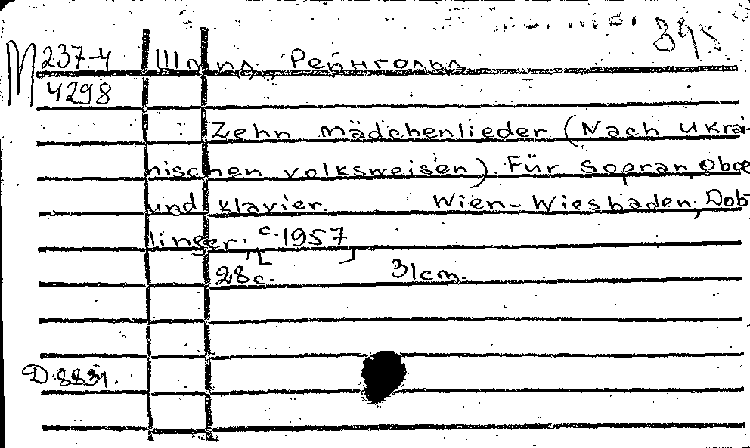 М 237-4 Шмид, Рейнгольд
4298
Zehn Mädchenlieder (Nach ukrai-
nischen volksweisen). Für Sopran, Oboe
und Klavier. Wien-Wiesbaden, Dob-
linger. c. 1957
28 c. 31 cm.
D. 8831.